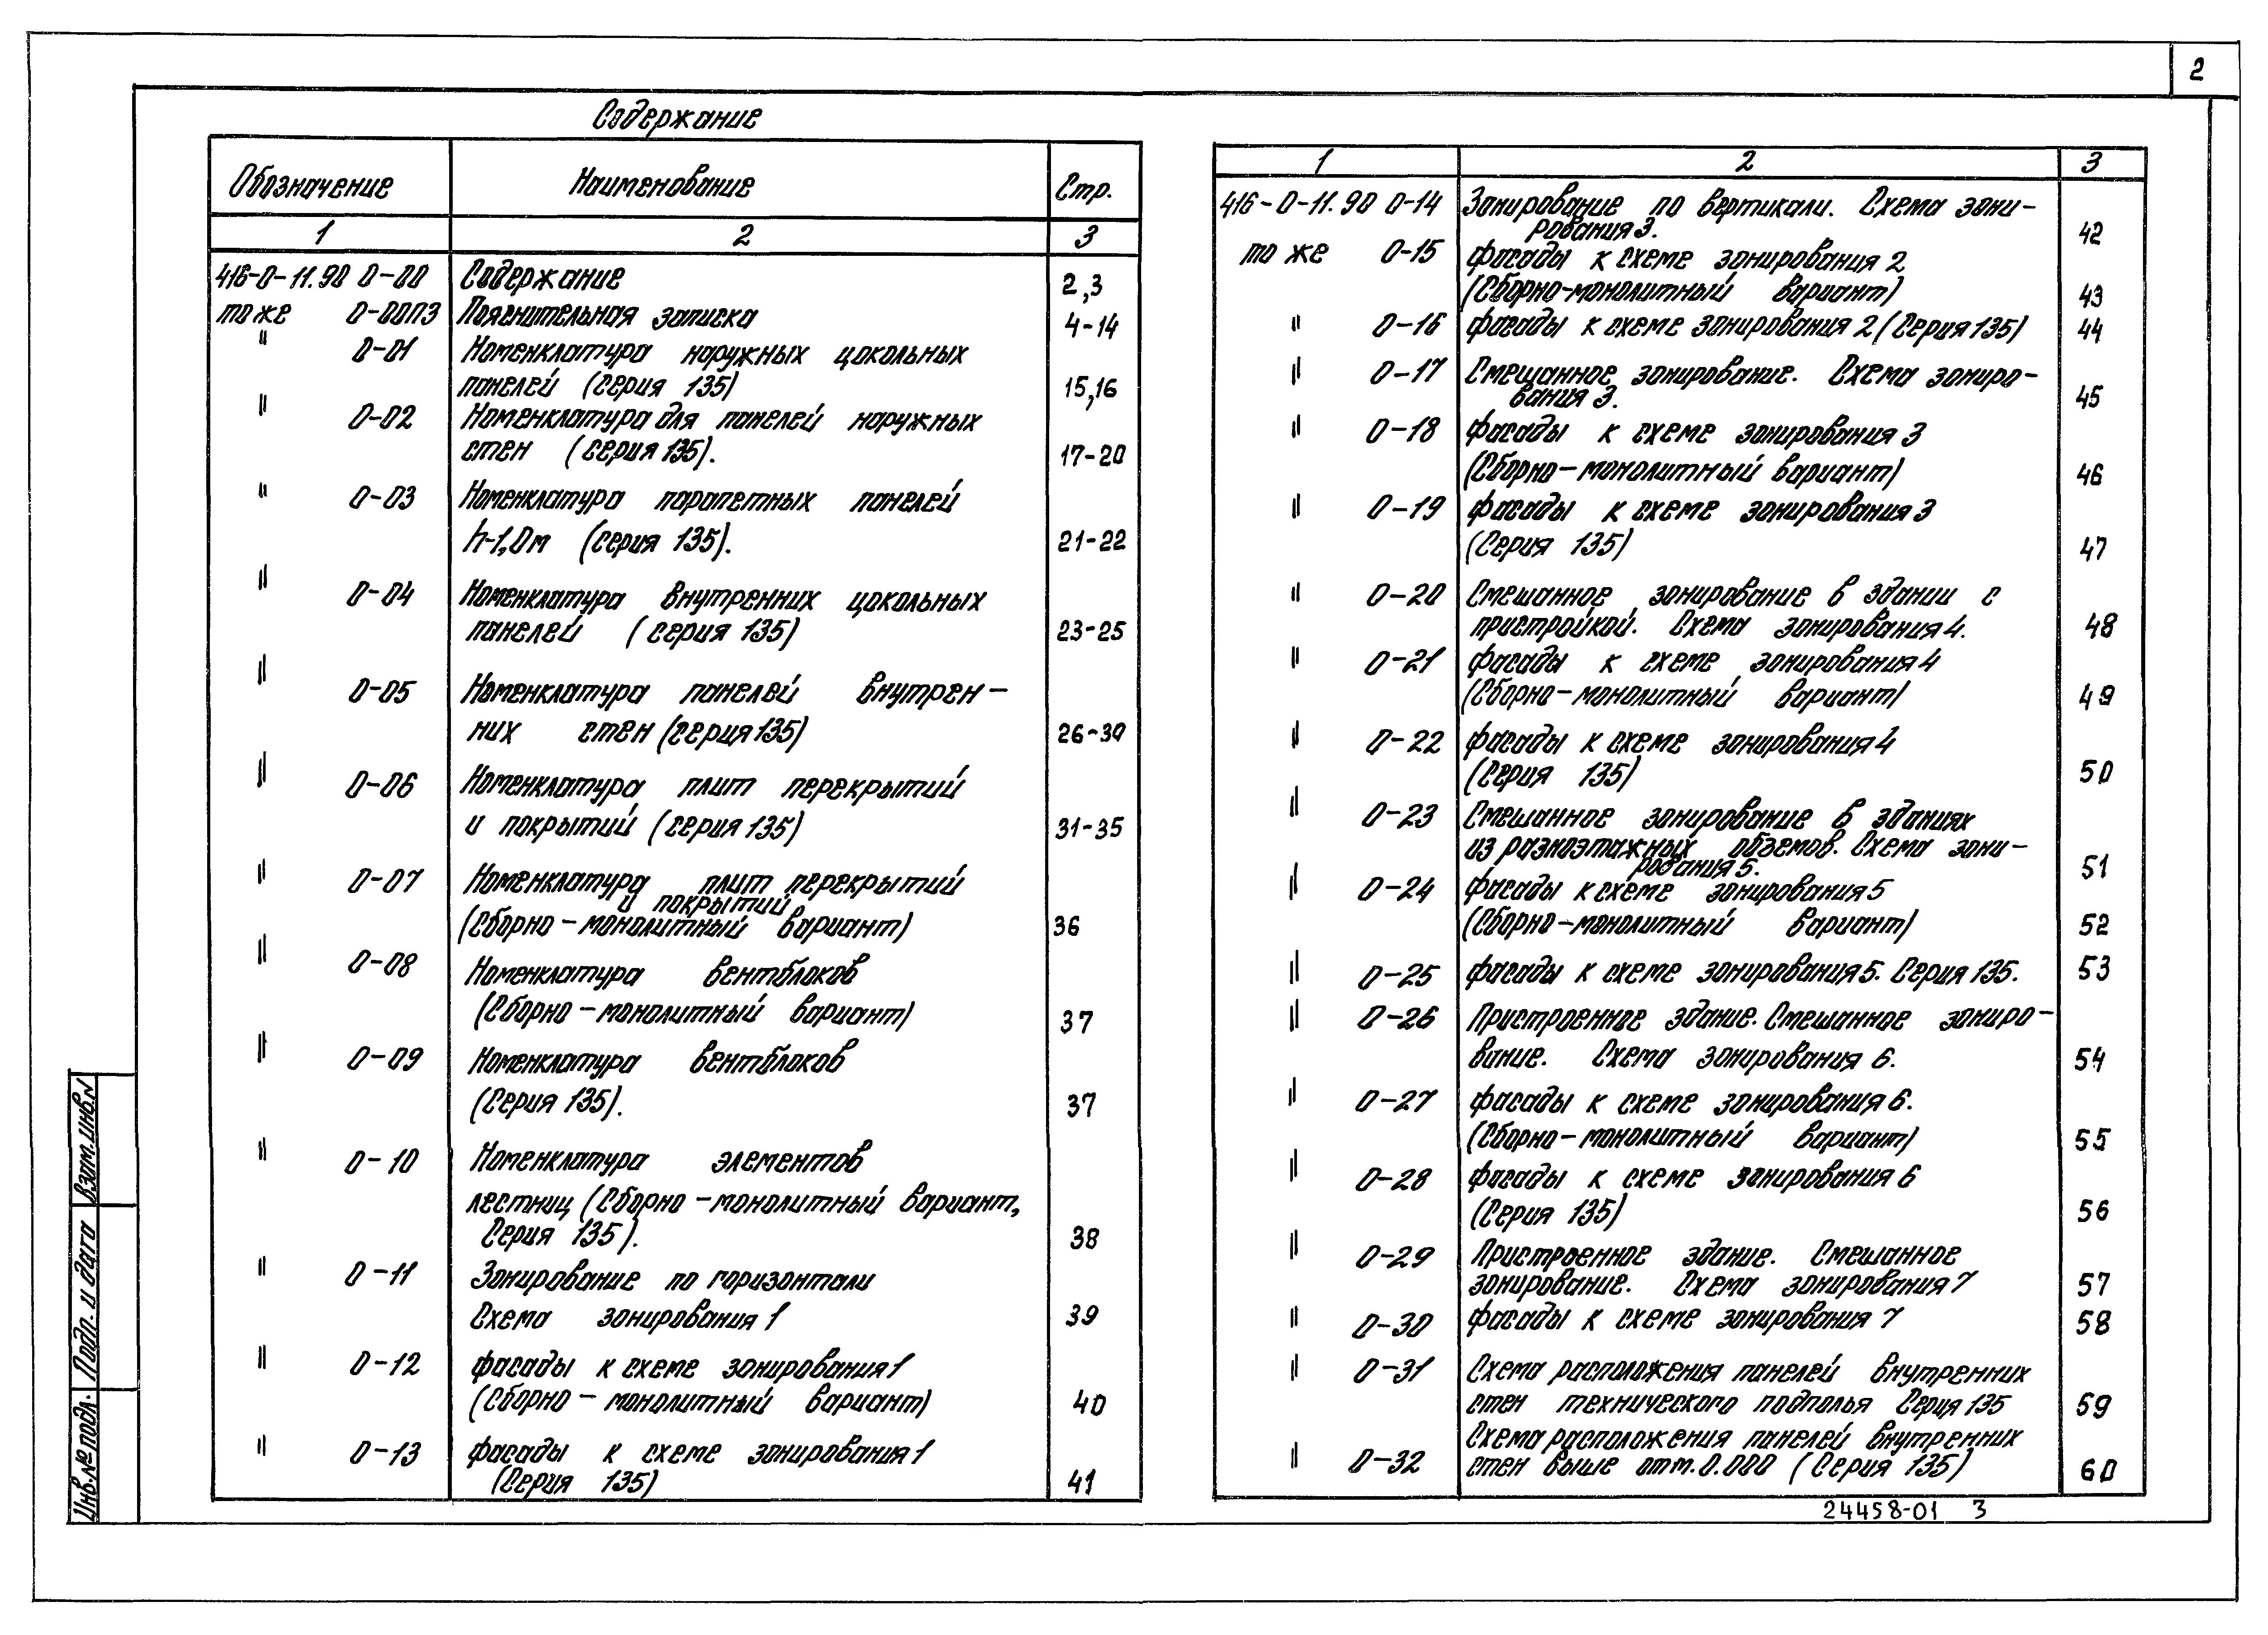 2
Содержание
Обозначение Наименование Стр.
1 2 3
416-0-11.90 0-00 Содержание 2,3
то же 0-00ПЗ Пояснительная записка 4-14
" 0-01 Номенклатура наружных цокольных
панелей (серия 135) 15,16
" 0-02 Номенклатура для панелей наружных
стен (серия 135). 17-20
" 0-03 Номенклатура парапетных панелей
h-1,0м (серия 135). 21-22
" 0-04 Номенклатура внутренних цокольных
панелей (серия 135) 23-25
" 0-05 Номенклатура панелей внутрен-
них стен (серия 135) 26-30
" 0-06 Номенклатура плит перекрытий
и покрытий (серия 135) 31-35
" 0-07 Номенклатура плит перекрытий
и покрытий
(Сборно-монолитный вариант) 36
" 0-08 Номенклатура вентблоков
(Сборно-монолитный вариант) 37
" 0-09 Номенклатура вентблоков
(Серия 135). 37
" 0-10 Номенклатура элементов
лестниц (Сборно-монолитный вариант,
Серия 135). 38
" 0-11 Зонирование по горизонтали
Схема зонирования 1 39
" 0-12 фасады к схеме зонирования 1
(Сборно-монолитный вариант) 40
" 0-13 фасады к схеме зонирования 1
(Серия 135) 41
1 2 3
416-0-11.90 0-14 Зонирование по вертикали. Схема зони-
рования 3. 42
то же 0-15 фасады к схеме зонирования 2
(Сборно-монолитный вариант) 43
" 0-16 фасады к схеме зонирования 2 (Серия 135) 44
" 0-17 Смешанное зонирование. Схема зониро-
вания 3. 45
" 0-18 фасады к схеме зонирования 3
(Сборно-монолитный вариант) 46
" 0-19 фасады к схеме зонирования 3
(Серия 135) 47
" 0-20 Смешанное зонирование в здании с
пристройкой. Схема зонирования 4. 48
" 0-21 фасады к схеме зонирования 4
(Сборно-монолитный вариант) 49
" 0-22 фасады к схеме зонирования 4
(Серия 135) 50
" 0-23 Смешанное зонирование в зданиях
из разноэтажных объемов. Схема зони-
рования 5. 51
" 0-24 фасады к схеме зонирования 5
(Сборно-монолитный вариант) 52
" 0-25 фасады к схеме зонирования 5. Серия 135. 53
" 0-26 Пристроенное здание. Смешанное зониро-
вание. Схема зонирования 6. 54
" 0-27 фасады к схеме зонирования 6.
(Сборно-монолитный вариант) 55
" 0-28 фасады к схеме зонирования 6
(Серия 135) 56
" 0-29 Пристроенное здание. Смешанное
зонирование. Схема зонирования 7 57
" 0-30 фасады к схеме зонирования 7 58
" 0-31 Схема расположения панелей внутренних
стен технического подполья Серия 135 59
Схема расположения панелей внутренних
" 0-32 стен выше отм. 0.000 (Серия 135) 60
24458-01 3
Взам. инв. N
Подп. и дата
Инв. № подл.